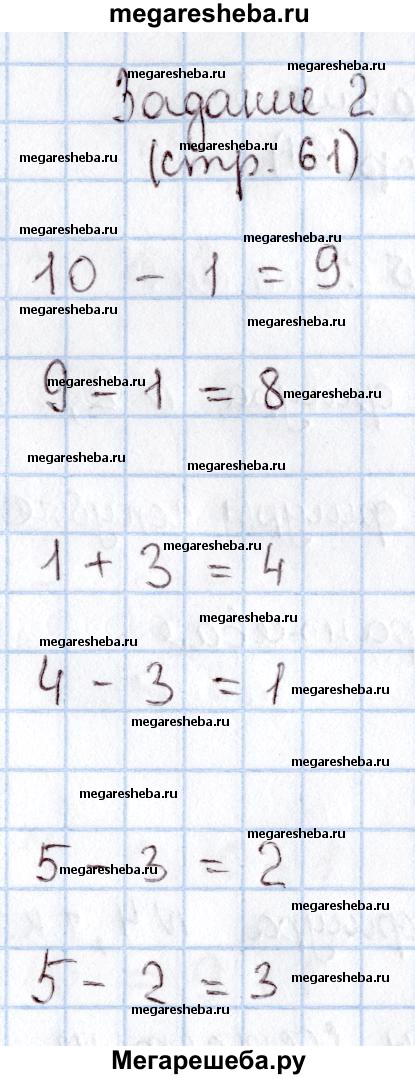 megaresheba.ru
megaresheba.ru
megaresheba.ru
Задание 2
megaresheba.ru
megaresheba.ru
(стр. 61)
megaresheba.ru
megaresheba.ru
10 - 1 = 9
megaresheba.ru
megaresheba.ru
megaresheba.ru
9 - 1 = 8
megaresheba.ru
megaresheba.ru
megaresheba.ru
megaresheba.ru
1 + 3 = 4
megaresheba.ru
megaresheba.ru
4 - 3 = 1
megaresheba.ru
megaresheba.ru
megaresheba.ru
megaresheba.ru
megaresheba.ru
5 - 3 = 2
megaresheba.ru
megaresheba.ru
5 - 2 = 3
megaresheba.ru
megaresheba.ru
Мегарешеба.ру